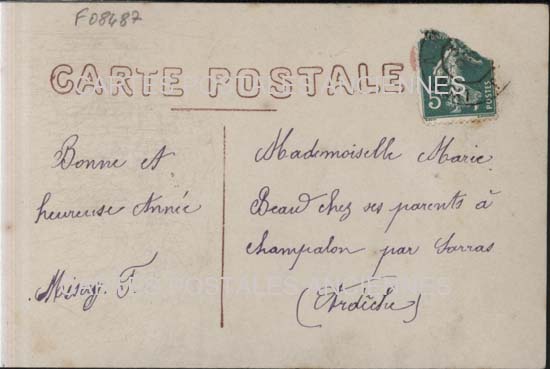 F08487
CARTE POSTALE
CARTES POSTALES ANCIENNES
5
POSTES
Bonne et
heureuse Année
Mademoiselle Marie
Beau chez ses parents à
champalon par Sarras
(Ardèche)
CARTES POSTALES ANCIENNES